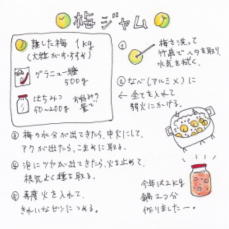 梅ジャム
熟した梅 1kg
(大粒がおすすめ)
グラニュー糖
500g
はちみつ
50~200g お好みの量で
① 梅を洗って
竹串でヘタを取り
水気を拭く。
② なべ(アルミ✕)に
全てを入れて
弱火にかける。
③ 梅の水分が出てきたら、中火にして、
アクが出たら、こまめに取る。
④ 泡にツヤが出てきたら、火を止めて、
根気よく種を取る。
⑤ 再度火を入れて、
きれいなビンにつめる。
今年は2kg
鍋2つ分
作りましたー。